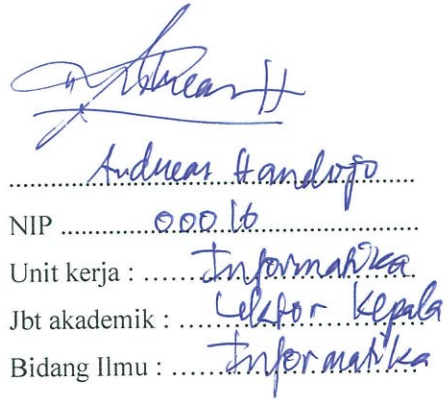 Andreas H
Andreas Handojo
NIP ..........00016..........
Unit kerja : ......Informatika
Jbt akademik : ....Lektor Kepala
Bidang Ilmu : ......Informatika